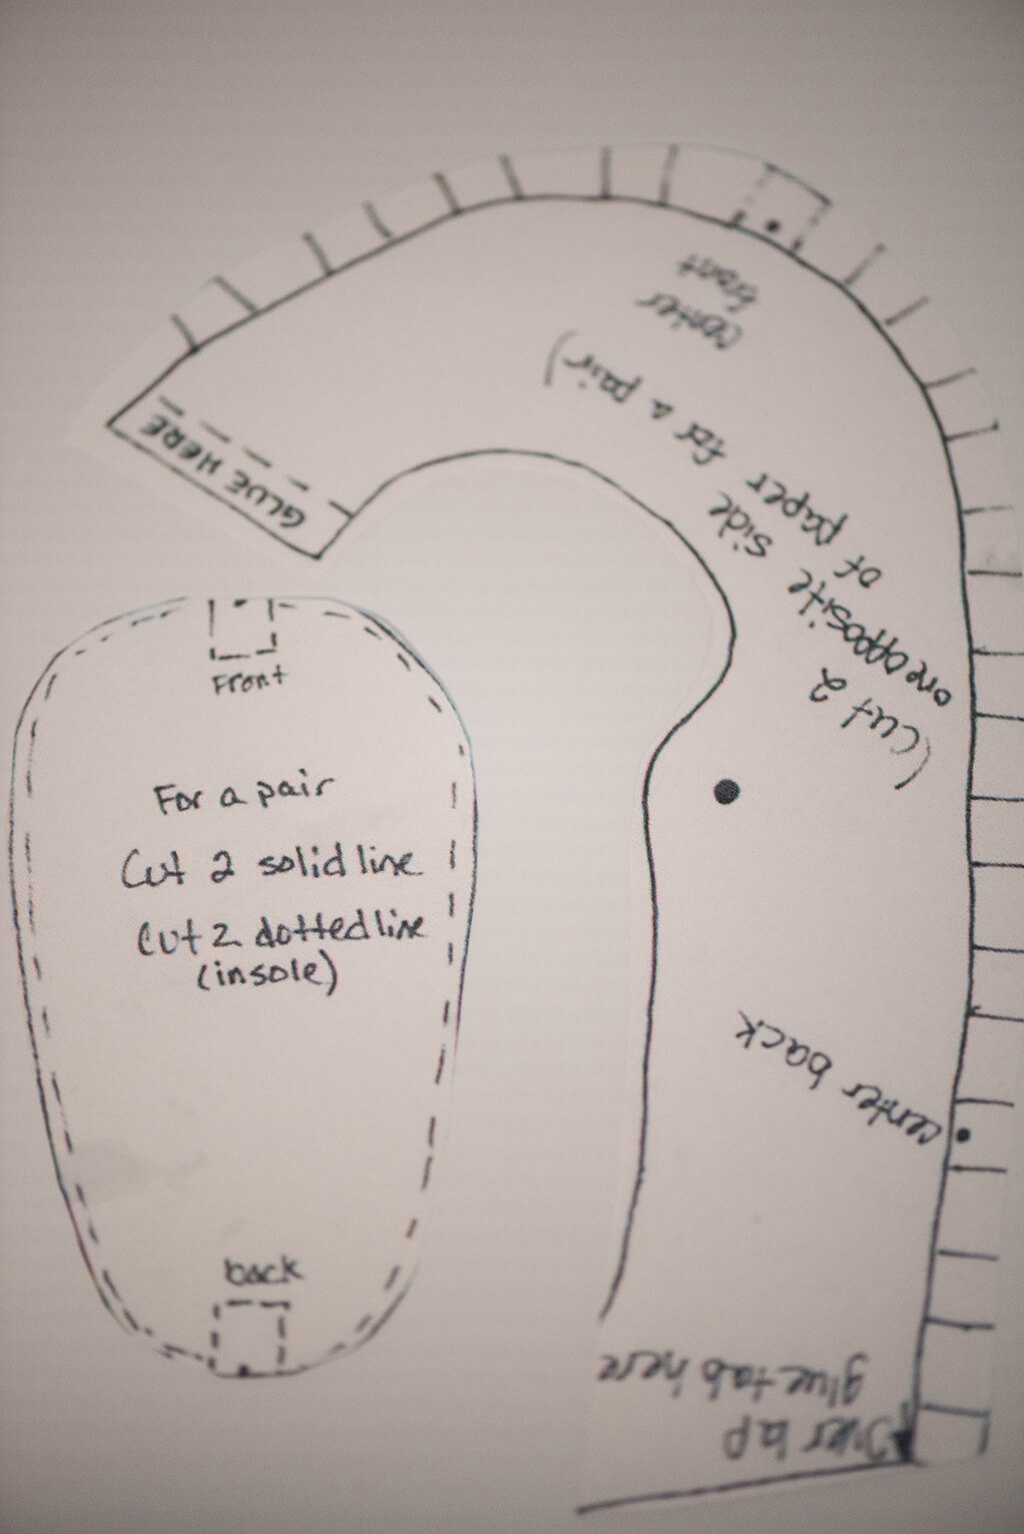 center
front
(cut 2
one opposite side
of paper for a pair)
GLUE HERE
Front
For a pair
Cut 2 solid line
Cut 2 dotted line
(insole)
back
center back
Over lap
glue tab here